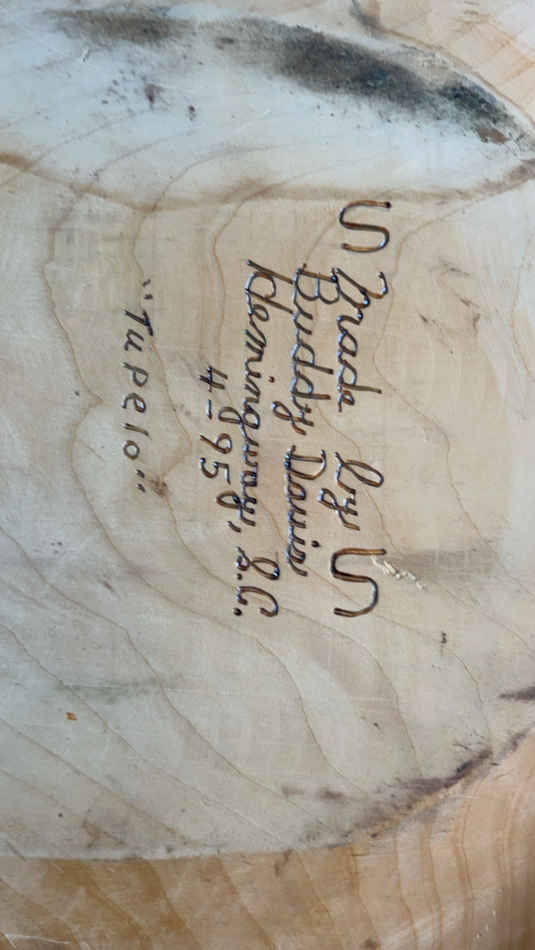 Made by
Buddy Davis
Hemingway, S.C.
4-95
"Tupelo"